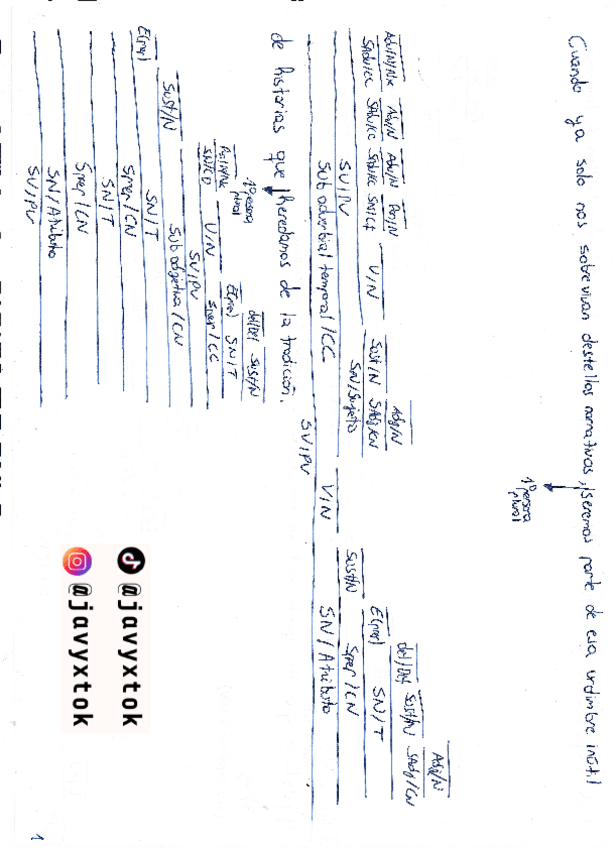 Cuando ya solo nos sobrevivan destellos narrativos, seremos parte de esa urdimbre inútil
1ª persona
plural
Adv/N/Nx Adv/N Adv/N Pro/N
SAdv/CC SAdv/CC SAdv/CC SN/CI V/N Sust/N SAdj/CN
Adj/N
SN/Sujeto
SV/PV
Sub adverbial temporal/CC
V/N
Sust/N E(prep) det/Det Sust/N SAdj/CN
Adj/N
SN/T
Sprep/CN
SN/Atributo
SV/PV
de historias que heredamos de la tradición.
1ª persona
plural
Pro/N/Nx
SN/CD V/N E(prep) det/Det Sust/N
SN/T
Sprep/CC
SV/PV
Sust/N Sub adjetiva/CN
E(prep) SN/T
Sprep/CN
SN/T
Sprep/CN
SN/Atributo
SV/PV
@javyxtok
@javyxtok
1